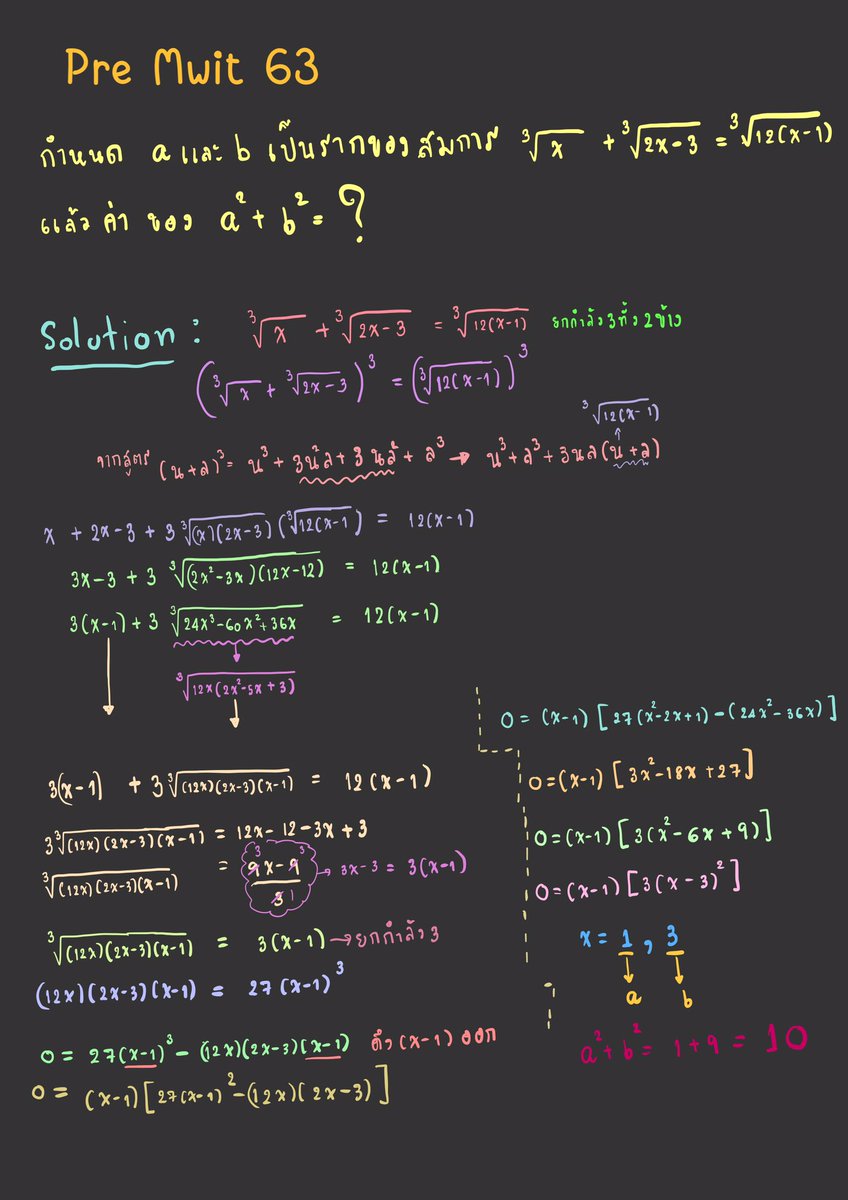 Pre Mwit 63
กำหนด a และ b เป็นรากของสมการ ∛x + ∛(2x-3) = ∛(12(x-1))
แล้วค่าของ a² + b² = ?
Solution : ∛x + ∛(2x-3) = ∛(12(x-1)) ยกกำลัง 3 ทั้ง 2 ข้าง
(∛x + ∛(2x-3))³ = (∛(12(x-1)))³
∛(12(x-1))
↑
จากสูตร (น+ล)³ = น³ + 3น²ล + 3นล² + ล³ → น³ + ล³ + 3นล(น+ล)
x + 2x-3 + 3∛((x)(2x-3)) (∛(12(x-1)) = 12(x-1)
3x-3 + 3∛((2x²-3x)(12x-12)) = 12(x-1)
3(x-1) + 3∛(24x³-60x²+36x) = 12(x-1)
∛(12x(2x²-5x+3))
3(x-1) + 3∛((12x)(2x-3)(x-1)) = 12(x-1)
3∛((12x)(2x-3)(x-1)) = 12x-12-3x+3
∛((12x)(2x-3)(x-1)) = (9x-9)/3 → 3x-3 = 3(x-1)
3 3
1
∛((12x)(2x-3)(x-1)) = 3(x-1) → ยกกำลัง 3
(12x)(2x-3)(x-1) = 27(x-1)³
0 = 27(x-1)³ - (12x)(2x-3)(x-1) ดึง (x-1) ออก
0 = (x-1)[27(x-1)² - (12x)(2x-3)]
0 = (x-1)[27(x²-2x+1) - (24x²-36x)]
0 = (x-1)[3x²-18x+27]
0 = (x-1)[3(x²-6x+9)]
0 = (x-1)[3(x-3)²]
x = 1 , 3
a b
a² + b² = 1+9 = 10